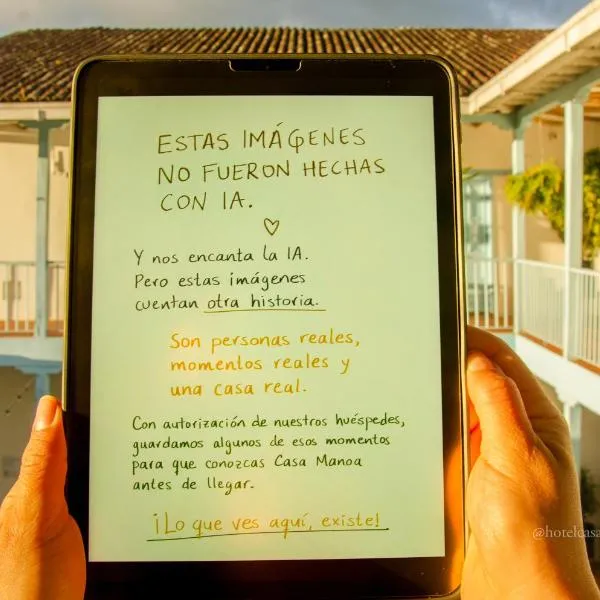 ESTAS IMÁGENES
NO FUERON HECHAS
CON IA.
Y nos encanta la IA.
Pero estas imágenes
cuentan otra historia.
Son personas reales,
momentos reales y
una casa real.
Con autorización de nuestros huéspedes,
guardamos algunos de esos momentos
para que conozcas Casa Manoa
antes de llegar.
¡Lo que ves aquí, existe!
@hotelcasa